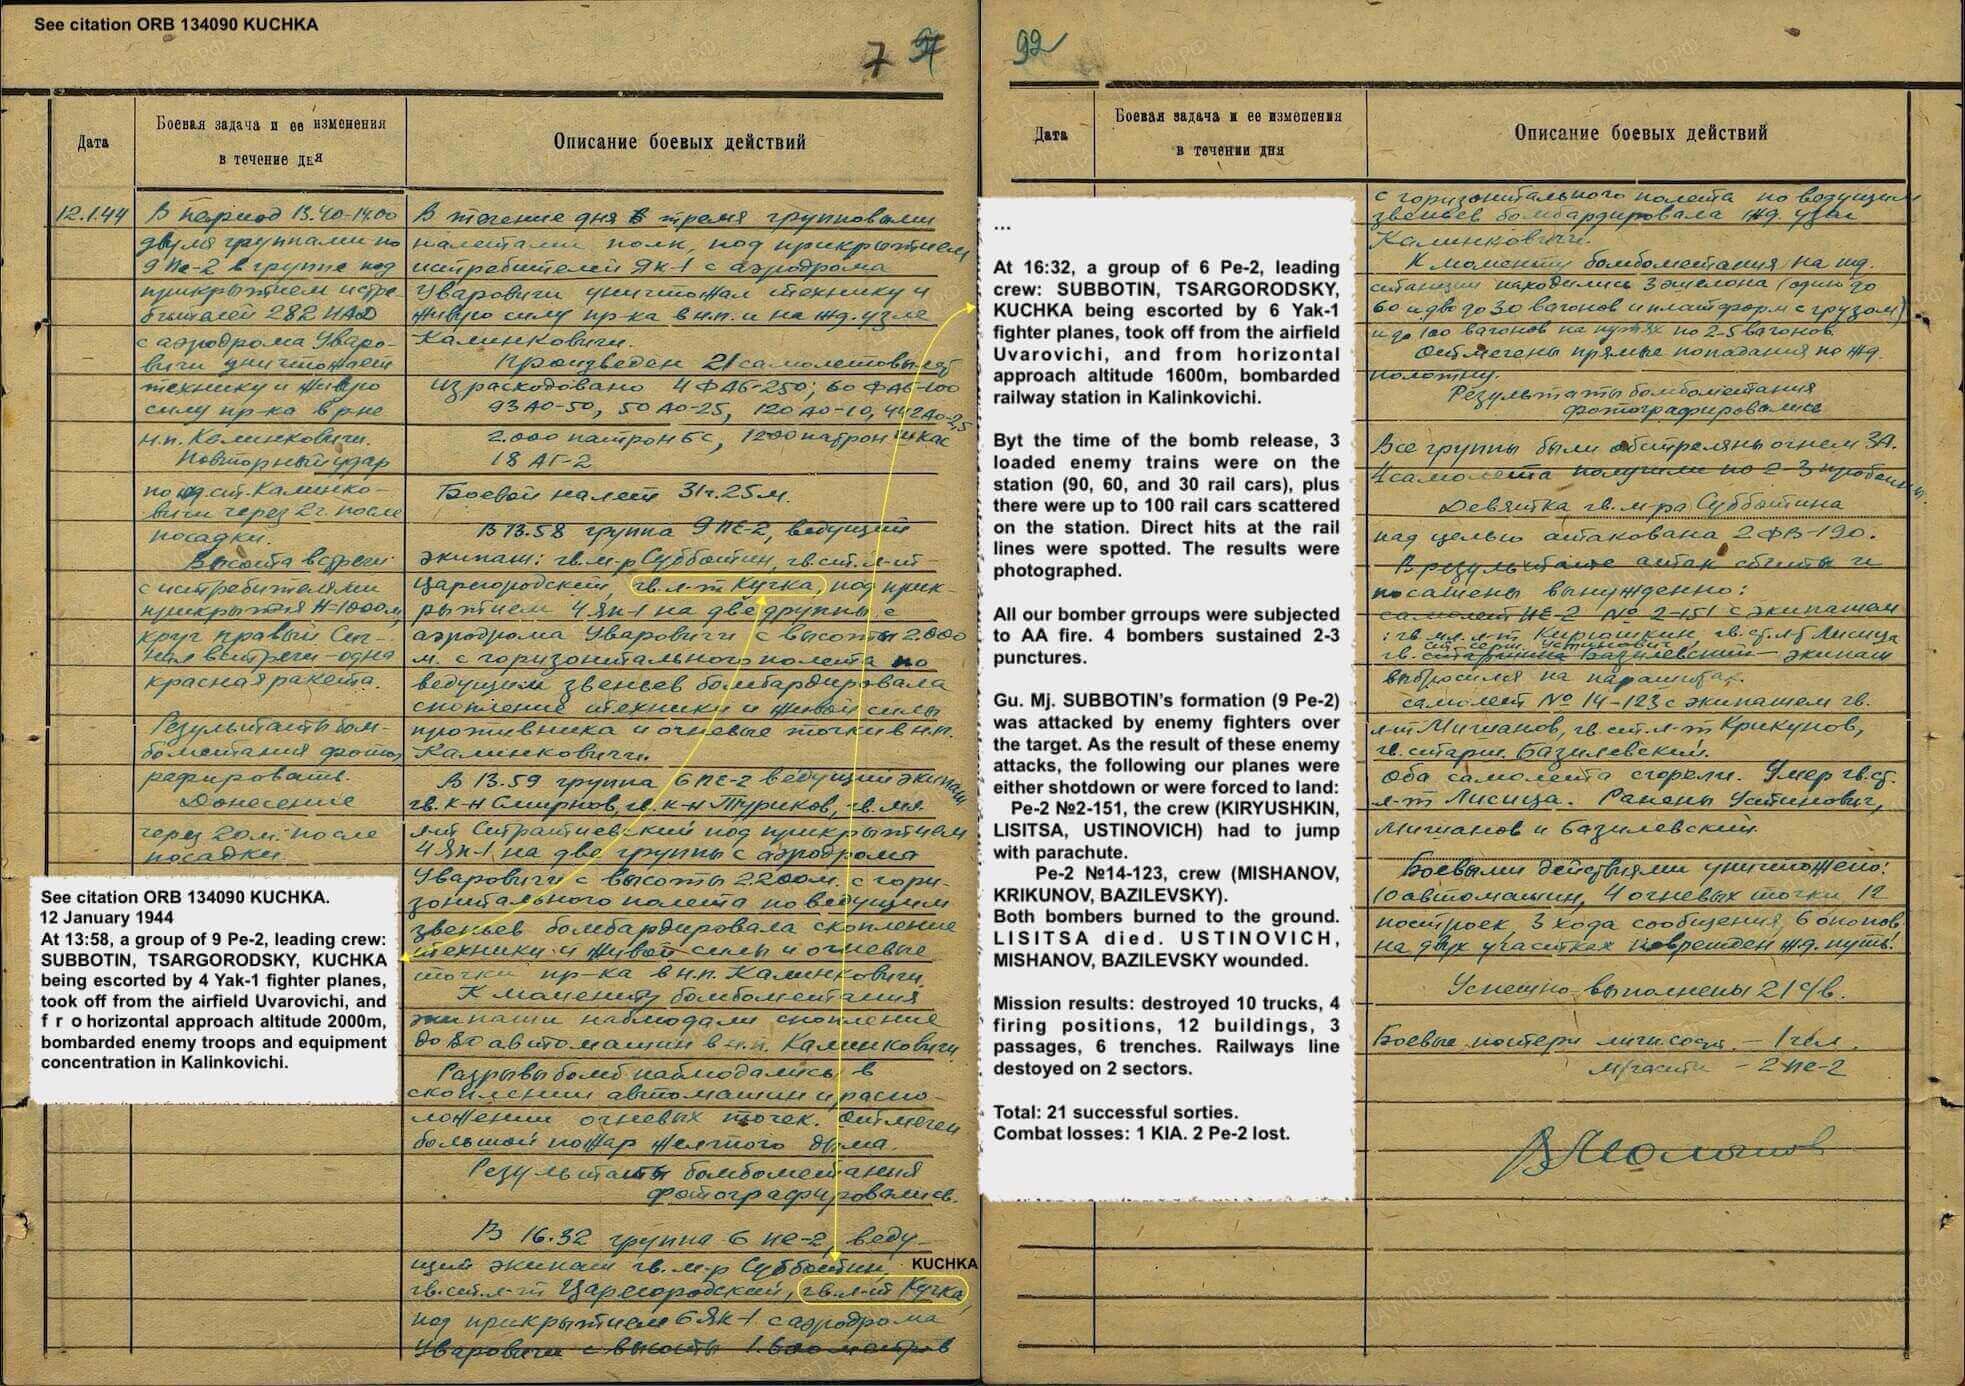 See citation ORB 134090 KUCHKA
7 91
Дата
Боевая задача и ее изменения
в течение дня
Описание боевых действий
12.1.44
В период 13.40-14.00
двумя группами по
9 Пе-2 в группе под
прикрытием истре-
бителей 282 ИАД
с аэродрома Уваро-
вичи уничтожает
технику и живую
силу пр-ка в р-не
н.п. Калинковичи.
Повторный удар
по жд.ст. Калинко-
вичи через 2 ч. после
посадки.
Высота встречи
с истребителями
прикрытия Н-1000м,
круг правый Сиг-
нал встречи - одна
красная ракета.
Результаты бом-
бометания фотог
рафировать.
Донесение
через 20 м. после
посадки.
В течение дня в тремя групповыми
налетами полк, под прикрытием
истребителей Як-1 с аэродрома
Уваровичи уничтожал технику и
живую силу пр-ка в н.п. и на жд. узле
Калинковичи.
Произведен 21 самолетовылет
израсходовано 4 ФАБ-250; 60 ФАБ-100
93 АО-50, 50 АО-25, 120 АО-10, 442 АО-2,5
2.000 патрон БС, 1200 патрон шкас
18 АГ-2
Боевой налет 31ч.25м.
В 13.58 группа 9 Пе-2, ведущий
экипаж: гв.м-р Субботин, гв.ст.л-т
Царегородский, гв.л-т Кучка, под прик-
рытием 4 Як-1 на две группы с
аэродрома Уваровичи с высоты 2.000
м. с горизонтального полета по
ведущим звеньев бомбардировала
скопление техники и живой силы
противника и огневые точки в н.п.
Калинковичи.
В 13.59 группа 6 Пе-2 ведущий экипаж
гв. к-н Смирнов, гв. к-н Туриков, гв. мл.
л-т Ситратиевский под прикрытием
4 Як-1 на две группы с аэродрома
Уваровичи с высоты 2.200м. с гори-
зонтального полета по ведущим
звеньев бомбардировала скопление
техники и живой силы и огневые
точки пр-ка в н.п. Калинковичи.
К моменту бомбометания
экипажи наблюдали скопление
до 80 автомашин в н.п. Калинковичи
Разрывы бомб наблюдались в
скоплении автомашин и распо-
ложении огневых точек. Отмечен
большой пожар желтого дыма.
Результаты бомбометания
фотографировались.
В 16.32 группа 6 Пе-2, веду-
щий экипаж гв. м-р Субботин,
KUCHKA
гв.ст.л-т Царегородский, гв.л-т Кучка,
под прикрытием 6 Як-1 с аэродрома
Уваровичи с высоты 1.600 метров
See citation ORB 134090 KUCHKA.
12 January 1944
At 13:58, a group of 9 Pe-2, leading crew:
SUBBOTIN, TSARGORODSKY, KUCHKA
being escorted by 4 Yak-1 fighter planes,
took off from the airfield Uvarovichi, and
f r o horizontal approach altitude 2000m,
bombarded enemy troops and equipment
concentration in Kalinkovichi.
92
Дата
Боевая задача и ее изменения
в течении дня
Описание боевых действий
...
At 16:32, a group of 6 Pe-2, leading
crew: SUBBOTIN, TSARGORODSKY,
KUCHKA being escorted by 6 Yak-1
fighter planes, took off from the airfield
Uvarovichi, and from horizontal
approach altitude 1600m, bombarded
railway station in Kalinkovichi.
Byt the time of the bomb release, 3
loaded enemy trains were on the
station (90, 60, and 30 rail cars), plus
there were up to 100 rail cars scattered
on the station. Direct hits at the rail
lines were spotted. The results were
photographed.
All our bomber grroups were subjected
to AA fire. 4 bombers sustained 2-3
punctures.
Gu. Mj. SUBBOTIN's formation (9 Pe-2)
was attacked by enemy fighters over
the target. As the result of these enemy
attacks, the following our planes were
either shotdown or were forced to land:
Pe-2 №2-151, the crew (KIRYUSHKIN,
LISITSA, USTINOVICH) had to jump
with parachute.
Pe-2 №14-123, crew (MISHANOV,
KRIKUNOV, BAZILEVSKY).
Both bombers burned to the ground.
LISITSA died. USTINOVICH,
MISHANOV, BAZILEVSKY wounded.
Mission results: destroyed 10 trucks, 4
firing positions, 12 buildings, 3
passages, 6 trenches. Railways line
destoyed on 2 sectors.
Total: 21 successful sorties.
Combat losses: 1 KIA. 2 Pe-2 lost.
с горизонтального полета по ведущим
звеньев бомбардировала жд. узел
Калинковичи.
К моменту бомбометания на жд.
станции находились 3 эшелона (один до
60 и два до 30 вагонов и платформ с грузом)
и до 100 вагонов на путях по 2-5 вагонов.
Отмечены прямые попадания по жд.
полотну.
Результаты бомбометания
фотографировались
Все группы были обстреляны огнем ЗА.
4 самолета получили по 2-3 пробоины.
Девятка гв. м-ра Субботина
над целью атакована 2 ФВ-190.
В результате атак сбиты и
посажены вынужденно:
самолет ПЕ-2 № 2-151 с экипажем
: гв. мл. л-т Кирюшкин, гв. ст. л-т Лисица
ст. серж. Устинович
гв. старшина Базилевский - экипаж
выбросился на парашютах.
самолет № 14-123 с экипажем гв.
л-т Мишанов, гв. ст. л-т Крикунов,
гв. старш. Базилевский.
Оба самолета сгорели. Умер гв. ст.
л-т Лисица. Ранены Устинович,
Мишанов и Базилевский.
Боевыми действиями уничтожено:
10 автомашин, 4 огневых точки 12
построек, 3 хода сообщения, 6 окопов,
на двух участках поврежден жд. путь.
Успешно выполнены 21 с/в.
Боевые потери личн. сост. - 1 чел.
м/части - 2 Пе-2